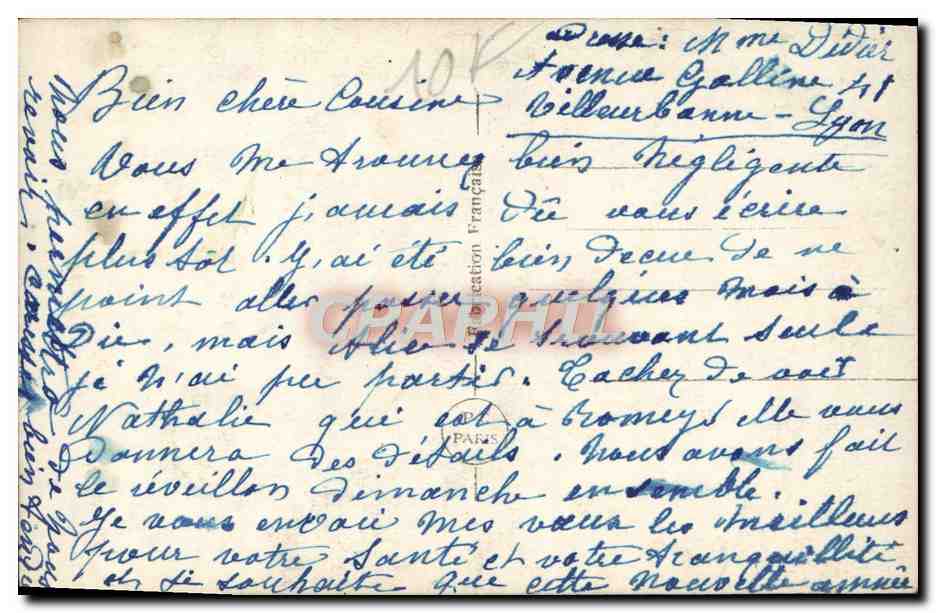 10F
Adresse: Mme Didier
Avenue Galline 41
Villeurbanne - Lyon
Bien chère Cousine
Vous me trouvez bien négligente
en effet j'amais dû vous écrire
plus tôt. J'ai été bien decue de ne
point aller passer quelques mois à
Die, mais Alice se trouvant seule
je n'ai pu partir. Tachez de voir
Nathalie qui est à Romeyer elle vous
donnera des détails. Nous avons fait
le réveillon dimanche ensemble.
Je vous envoie mes vœux les meilleurs
pour votre santé et votre tranquillité
et je souhaite que cette nouvelle année
nous permettra de nous
revoir. Cousine bien
Fabrication Française
P.C. PARIS
CPAPHIL